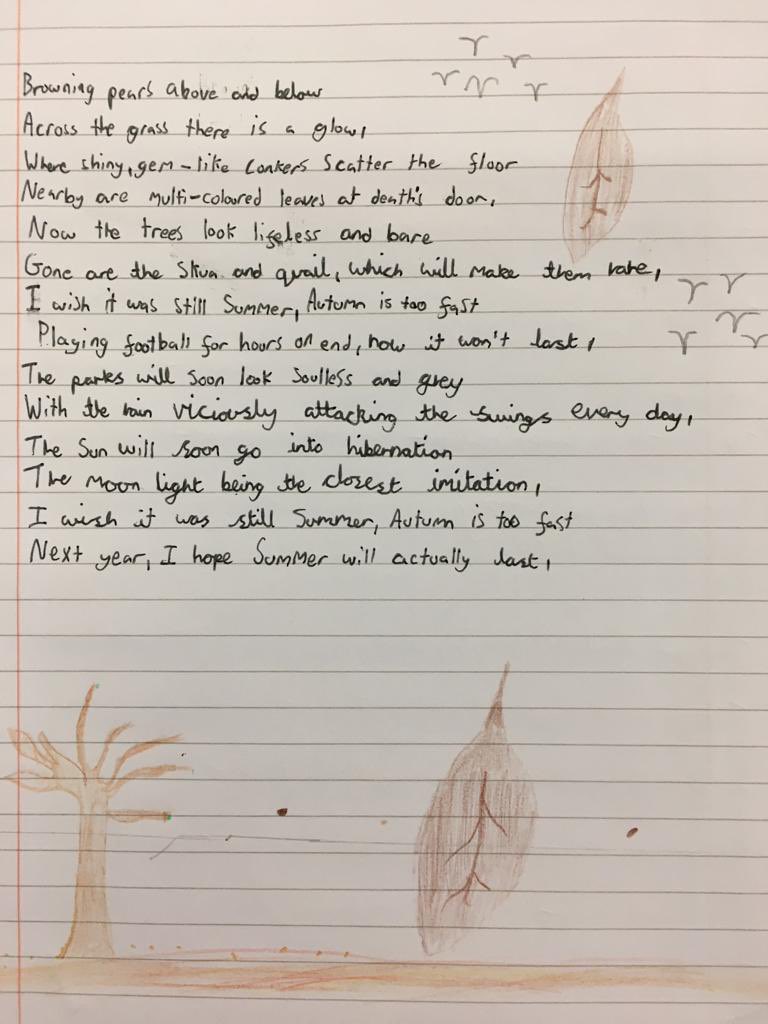 Browning pears above and below
Across the grass there is a glow,
Where shiny, gem-like conkers scatter the floor
Nearby are multi-coloured leaves at death's door,
Now the trees look lifeless and bare
Gone are the Skua and quail, which will make them rare,
I wish it was still Summer, Autumn is too fast
Playing football for hours on end, now it won't last,
The parks will soon look soulless and grey
With the rain viciously attacking the swings every day,
The Sun will soon go into hibernation
The Moon light being the closest imitation,
I wish it was still Summer, Autumn is too fast
Next year, I hope Summer will actually last,